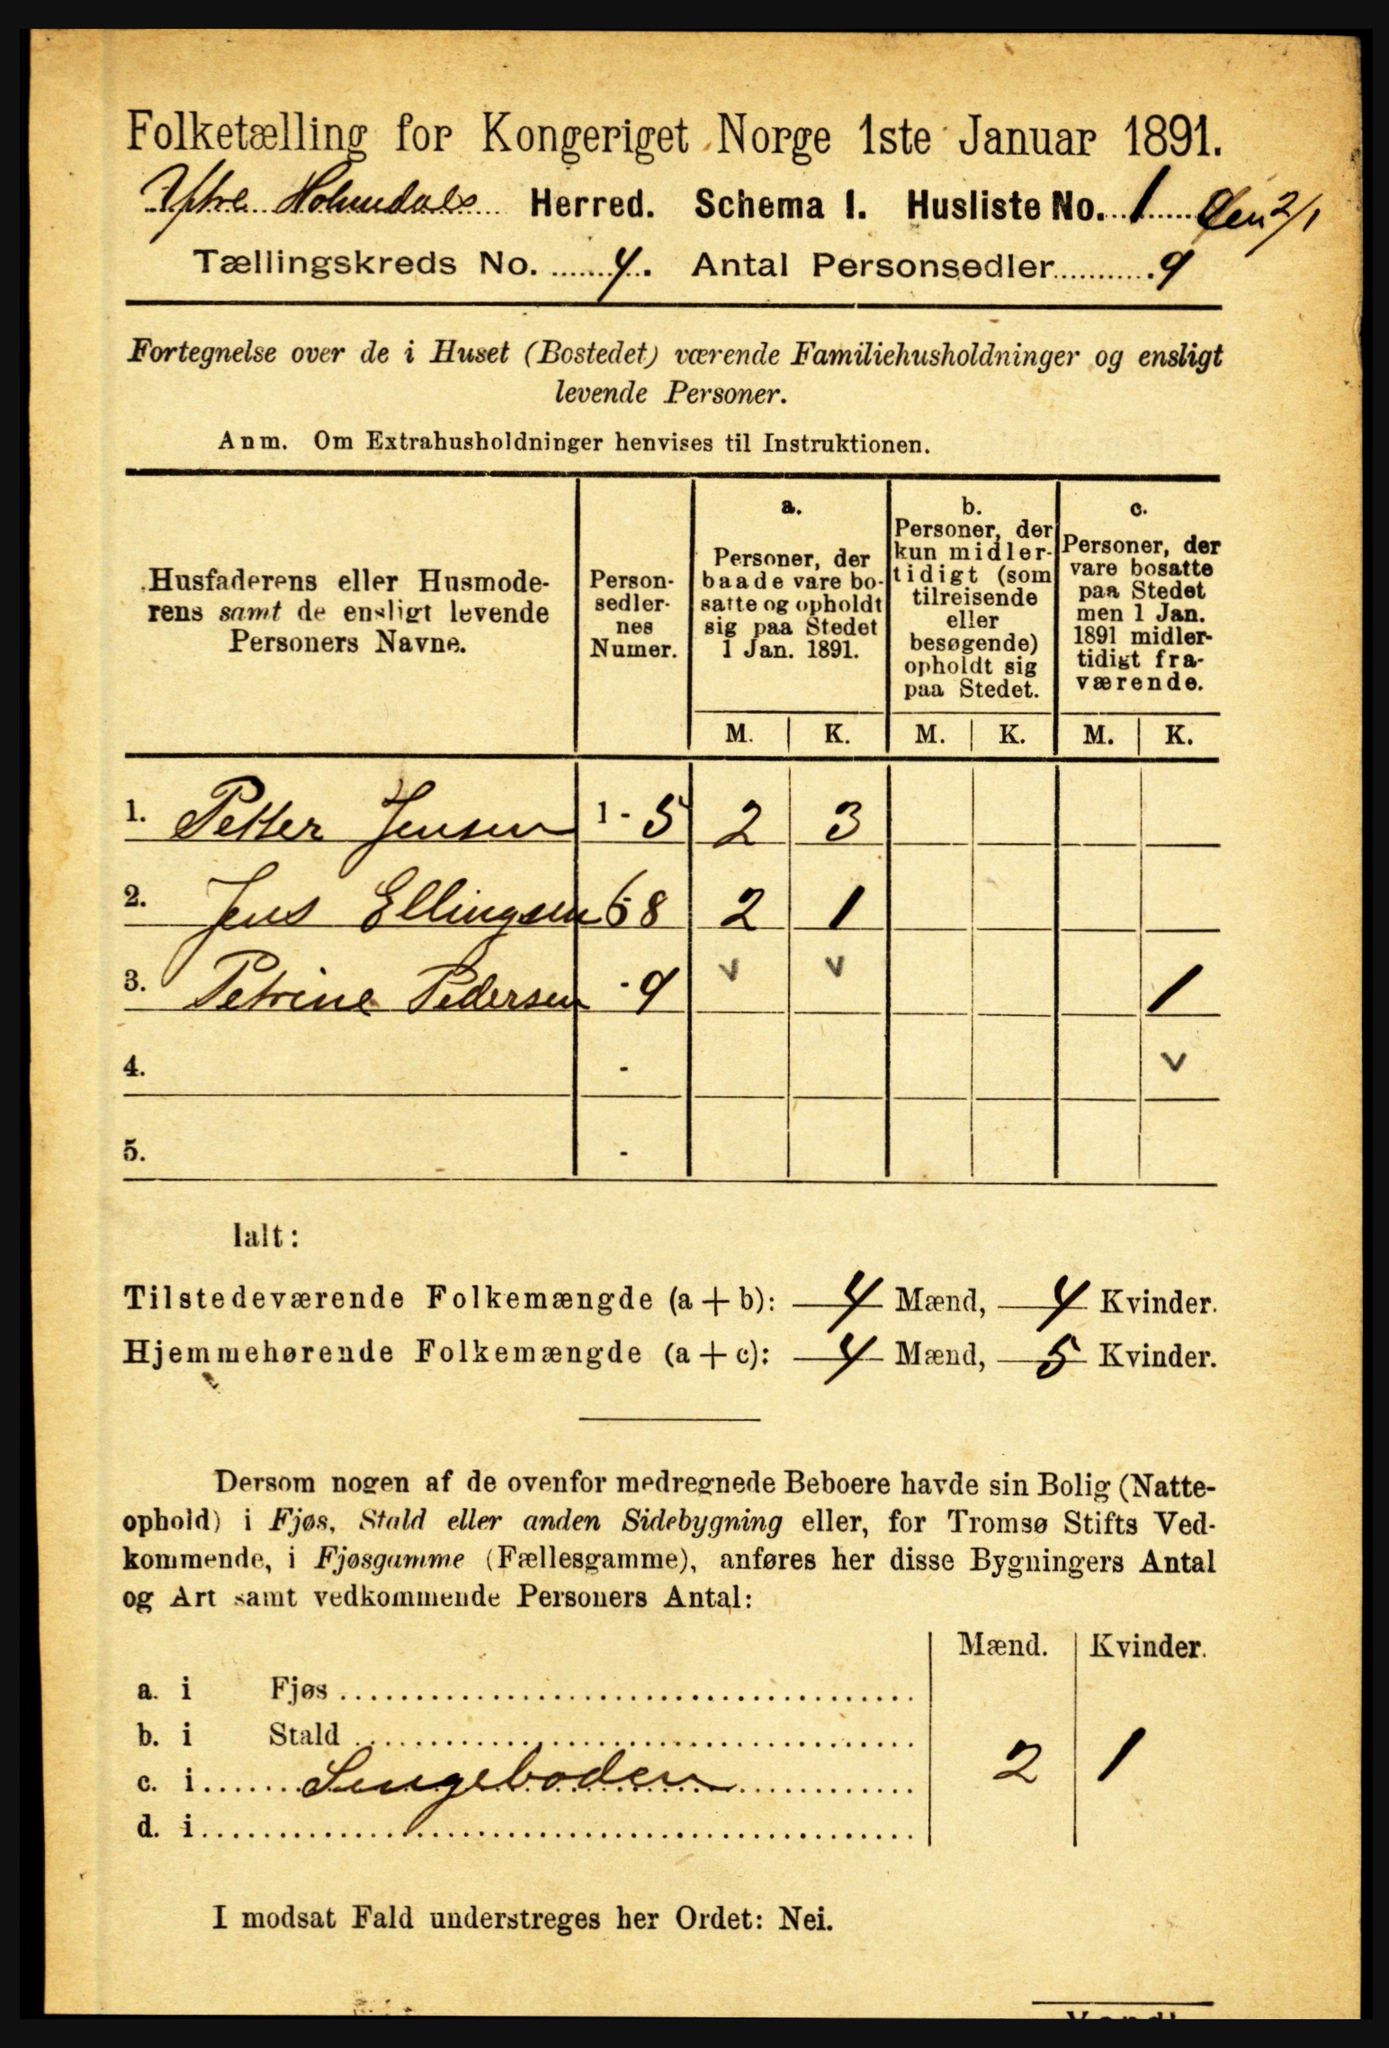 Folketælling for Kongeriget Norge 1ste Januar 1891.
Ytre Holmedals Herred. Schema I. Husliste No. 1 Den 2/1
Tællingskreds No. 4. Antal Personsedler 9
Fortegnelse over de i Huset (Bostedet) værende Familiehusholdninger og ensligt
levende Personer.
Anm. Om Extrahusholdninger henvises til Instruktionen.
Husfaderens eller Husmode-
rens samt de ensligt levende
Personers Navne.
Person-
sedler-
nes
Numer.
a.
Personer, der
baade vare bo-
satte og opholdt
sig paa Stedet
1 Jan. 1891.
b.
Personer, der
kun midler-
tidigt (som
tilreisende
eller
besøgende)
opholdt sig
paa Stedet.
c.
Personer, der
vare bosatte
paa Stedet
men 1 Jan.
1891 midler-
tidigt fra-
værende.
M. K. M. K. M. K.
1. Petter Jensen 1 - 5 2 3
2. Jens Ellingsen 6-8 2 1
3. Petrine Pedersen - 9 v v 1
4. - v
5. -
Ialt:
Tilstedeværende Folkemængde (a + b): 4 Mænd, 4 Kvinder.
Hjemmehørende Folkemængde (a + c): 4 Mænd, 5 Kvinder.
Dersom nogen af de ovenfor medregnede Beboere havde sin Bolig (Natte-
ophold) i Fjøs, Stald eller anden Sidebygning eller, for Tromsø Stifts Ved-
kommende, i Fjøsgamme (Fællesgamme), anføres her disse Bygningers Antal
og Art samt vedkommende Personers Antal:
Mænd. Kvinder.
a. i Fjøs
b. i Stald
c. i Sengeboden 2 1
d. i
I modsat Fald understreges her Ordet: Nei.
Vend!